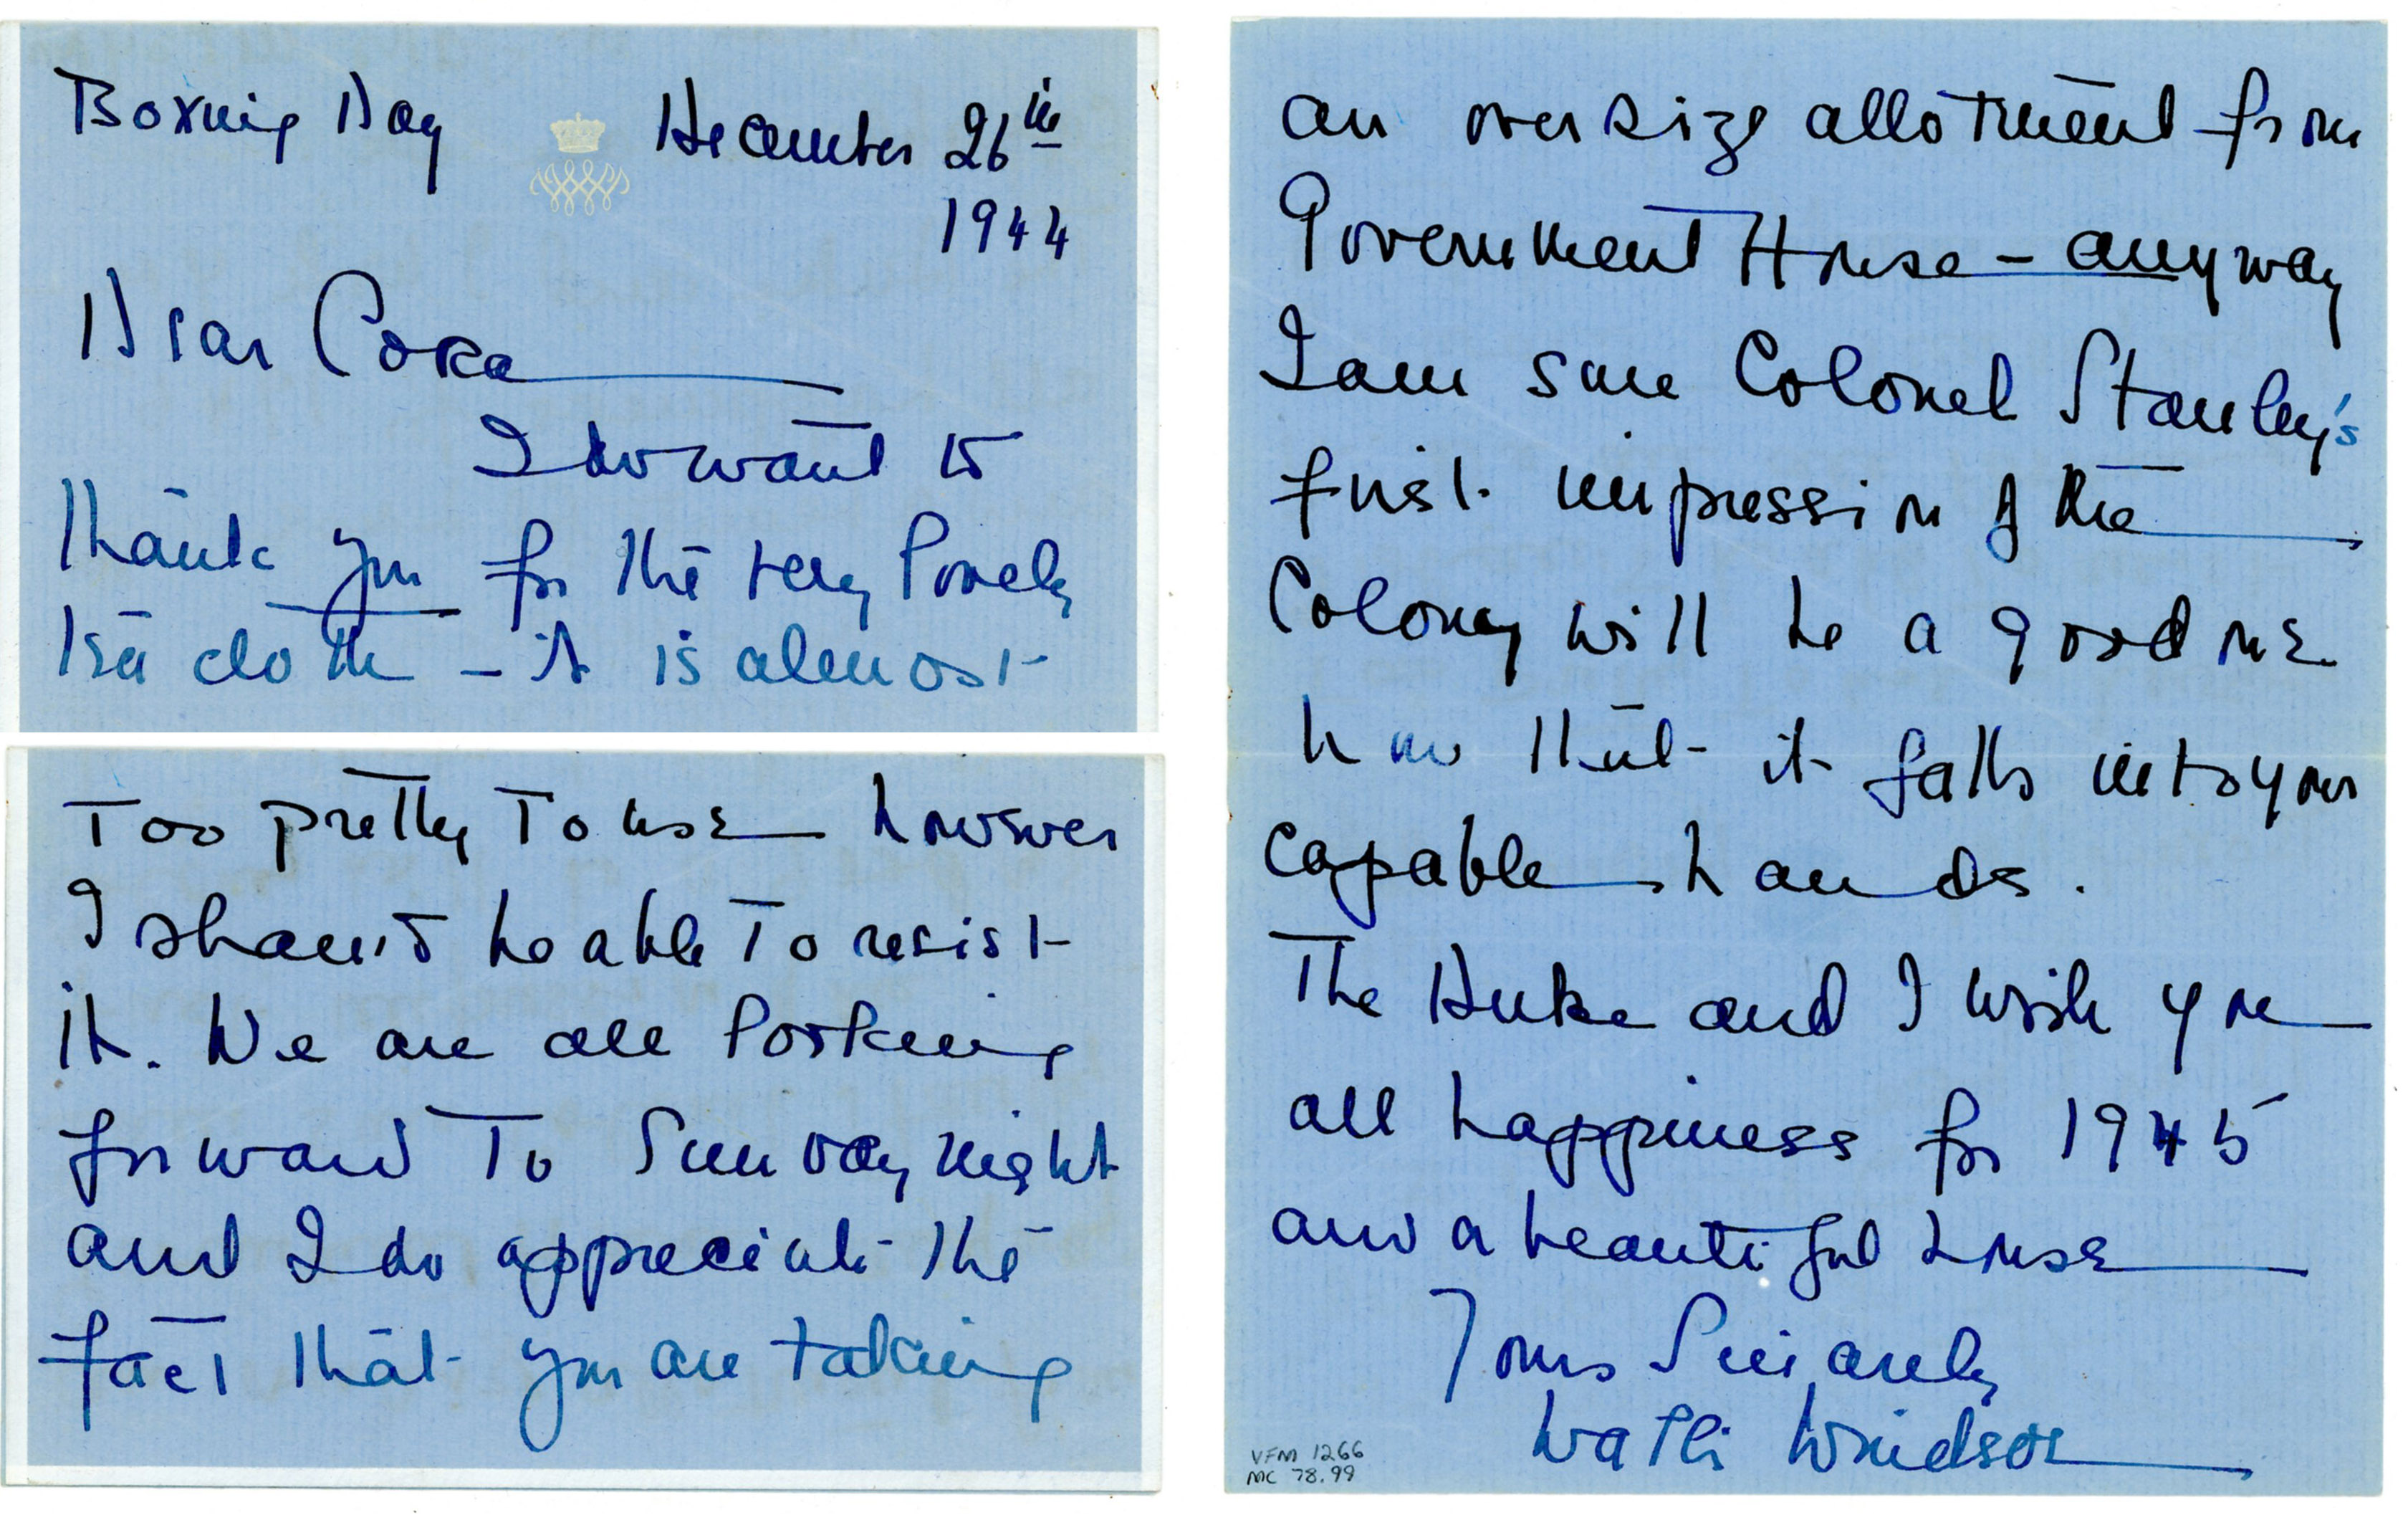 Boxing Day December 26th
1944
Dear Coka
I do want to
thank you for the very lovely
tea cloth – it is almost
too pretty to use however
I shan't be able to resist
it. We are all looking
forward to Sunday night
and I do appreciate the
fact that you are taking
an oversize allotment from
Government House – anyway
I am sure Colonel Stanley's
first impression of the
Colony will be a good one
now that it falls into your
capable hands.
The Duke and I wish you
all happiness for 1945
and a beautiful house
Yours Sincerely
Wallis Windsor
VFM 1266
MC 78.99